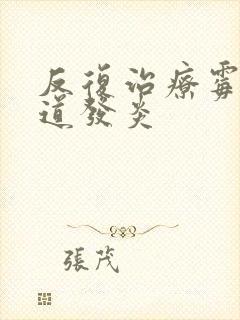 反復治療霉
道發炎
張茂